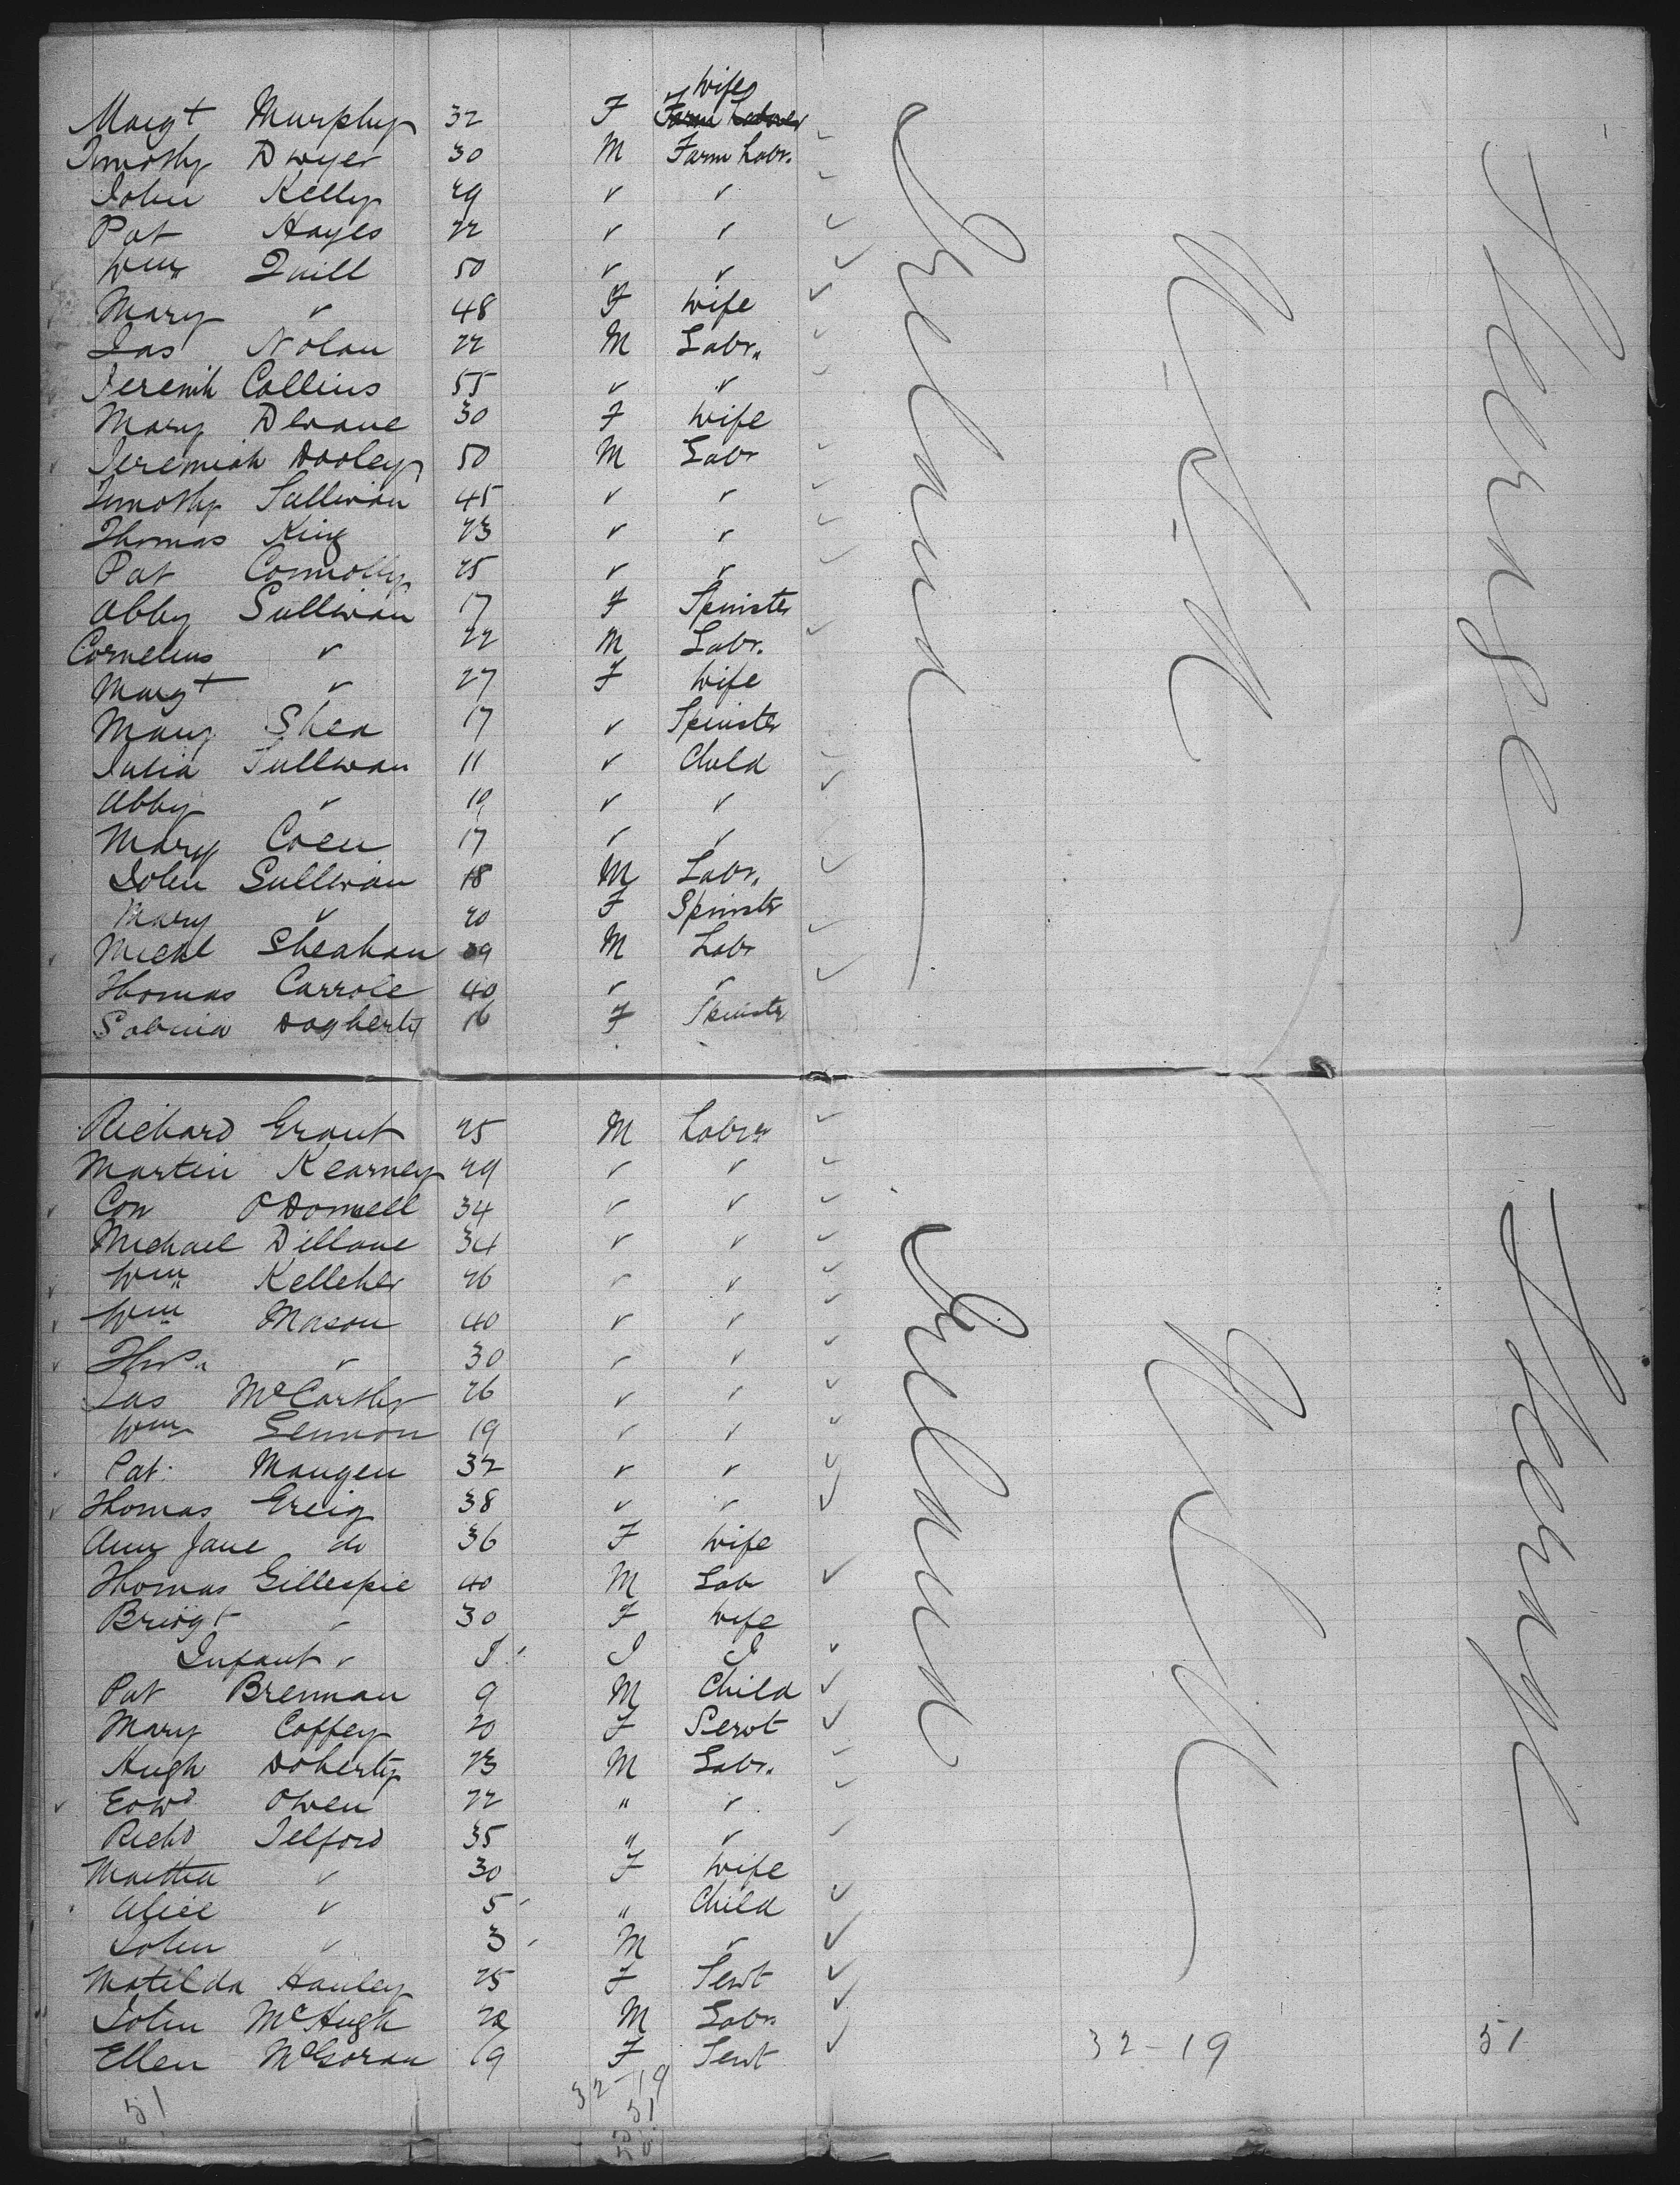 Margt Murphy 32 F Wife Farm Laborer
Timothy Dwyer 30 M Farm Labr.
John Kelly 29 " "
Pat Hayes 22 " "
Wm Quill 50 " "
Mary " 48 F Wife
Jas Nolan 22 M Labr.
Jeremih Collins 55 " "
Mary Devane 30 F Wife
Jeremiah Dooley 50 M Labr
Timothy Sullivan 45 " "
Thomas King 23 " "
Pat Connolly 25 " "
Abby Sullivan 17 F Spinster
Cornelius " 22 M Labr.
Margt " 27 F Wife
Mary Shea 17 " Spinster
Julia Sullivan 11 " Child
Abby " 10 " "
Mary Coen 17 " "
John Sullivan 18 M Labr.
Mary " 20 F Spinster
Mical Sheahan 29 M Labr
Thomas Carrole 40 " "
Sabina Dogherty 16 F Spinster
Ireland
N.Y.
Steerage
Richard Grant 25 M Labr
Martin Kearney 29 " "
Con O'Donnell 34 " "
Michael Dillane 34 " "
Wm Kelleher 26 " "
Wm Mason 40 " "
Thos. " 30 " "
Jas McCarthy 26 " "
Wm Lennon 19 " "
Pat. Mangen 32 " "
Thomas Greig 38 " "
Ann Jane do 36 F Wife
Thomas Gillespie 40 M Labr
Bridgt " 30 F Wife
Infant " I I I
Pat Brennan 9 M Child
Mary Coffey 20 F Servt
Hugh Doherty 23 M Labr.
Edwd Owen 22 " "
Richd Telford 35 " "
Martha " 30 F Wife
Alice " 5 " Child
John " 3 M "
Matilda Hanley 25 F Servt
John McHugh 22 M Labr
Ellen McGoran 19 F Servt
Ireland
Steerage
32-19 51
51 32-19
51